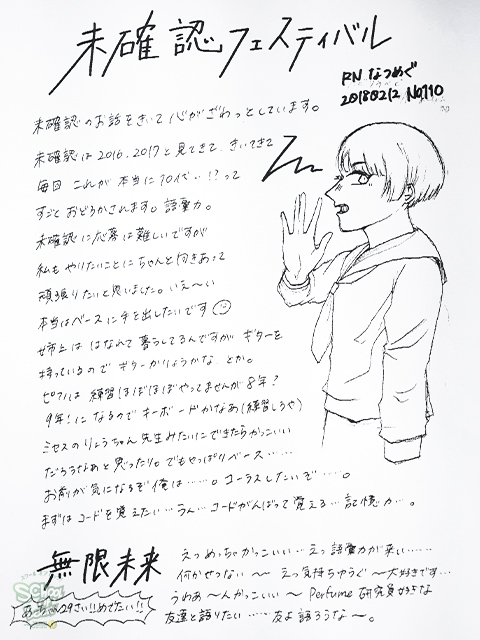 未確認フェスティバル
RN なつめぐ
20180212 No,110
未確認のお話をきいて心がざわっとしています。
未確認は2016、2017と見てきて、きいてきて
毎回これが本当に10代…!?って
すごくおどろかされます。語彙力。
未確認に応募は難しいですが
私もやりたいことにちゃんと向きあって
頑張りたいと思いました。いえ〜い
本当はベースに手を出したいです
はなれて暮らしてるんですがギターを
持っているのでギターかりようかな、とか。
ピアノは練習ほぼほぼやってませんが8年?
9年!になるのでキーボードかなあ(練習しろや)
ミセスのりょうちゃん先生みたいにできたらかっこいい
だろうなあと思ったり。でもやっぱりベース……
お前が気になるぞ俺は……。コーラスしたいぞ……。
まずはコードを覚えたい…うん…コードがんばって覚える…記憶力…。
無限未来
えっめっちゃかっこいい…えっ語彙力が来い……
何かせつない〜えっ気持ちゅうぐ〜大好きです…
うわあ〜んかっこいい〜Perfume研究員好きな
友達と語りたい……友よ語ろうな〜。
あ〜ちゃん29さい!!めでたい!!